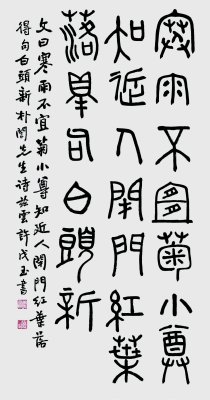 寒雨不宜菊小尊
知近人閉門紅葉
落得句白頭新
文曰寒雨不宜菊小尊知近人閉門紅葉落
得句白頭新朴先生詩雲許玉書